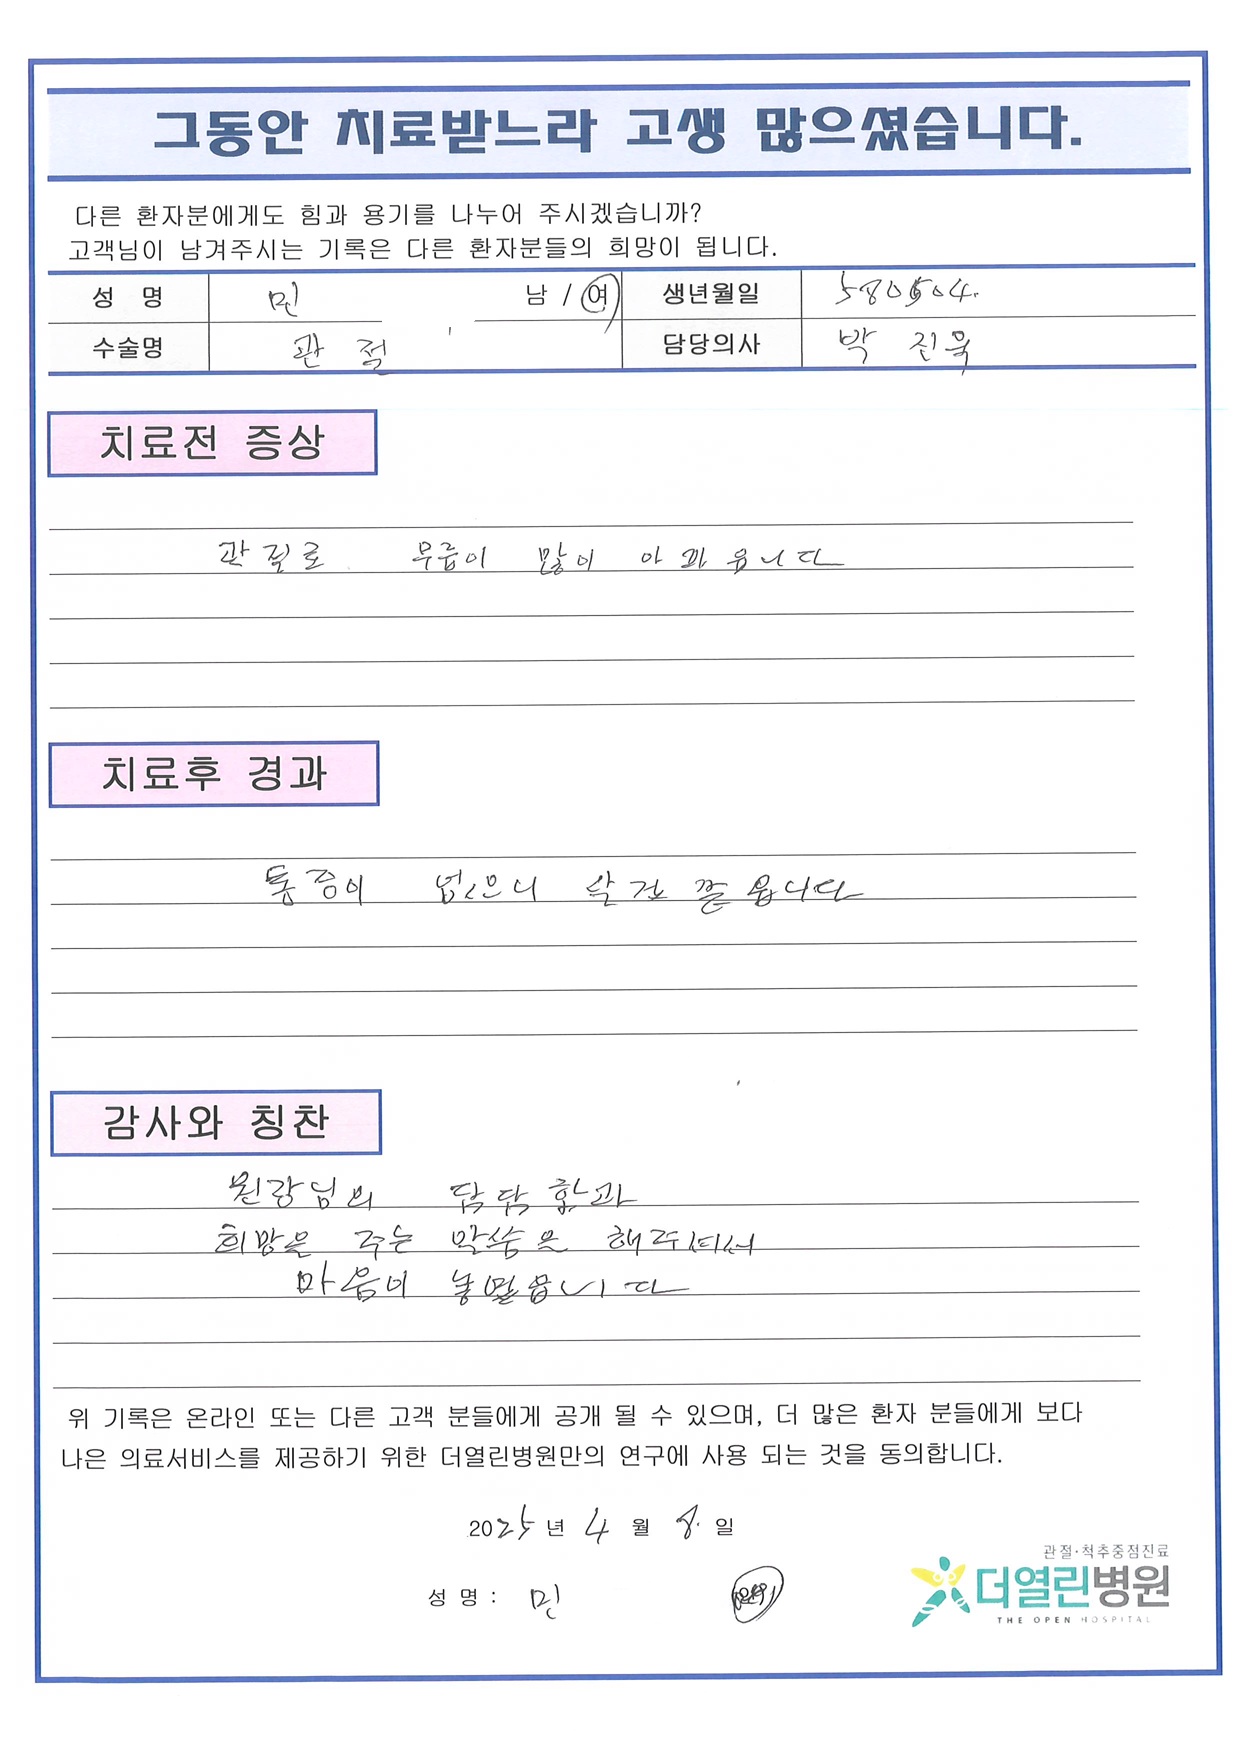 그동안 치료받느라 고생 많으셨습니다.
다른 환자분에게도 힘과 용기를 나누어 주시겠습니까?
고객님이 남겨주시는 기록은 다른 환자분들의 희망이 됩니다.
성 명 민 남 / 여 생년월일 580504.
수술명 관절 담당의사 박진욱
치료전 증상
관절로 무릎이 많이 아파읍니다
치료후 경과
통증이 없으니 살것 같읍니다
감사와 칭찬
원장님의 담담함과
희망을 주는 말씀을 해주셔서
마음이 놓였읍니다
위 기록은 온라인 또는 다른 고객 분들에게 공개 될 수 있으며, 더 많은 환자 분들에게 보다
나은 의료서비스를 제공하기 위한 더열린병원만의 연구에 사용 되는 것을 동의합니다.
2025년 4월 8.일
성 명 : 민
관절·척추중점진료
더열린병원
THE OPEN HOSPITAL